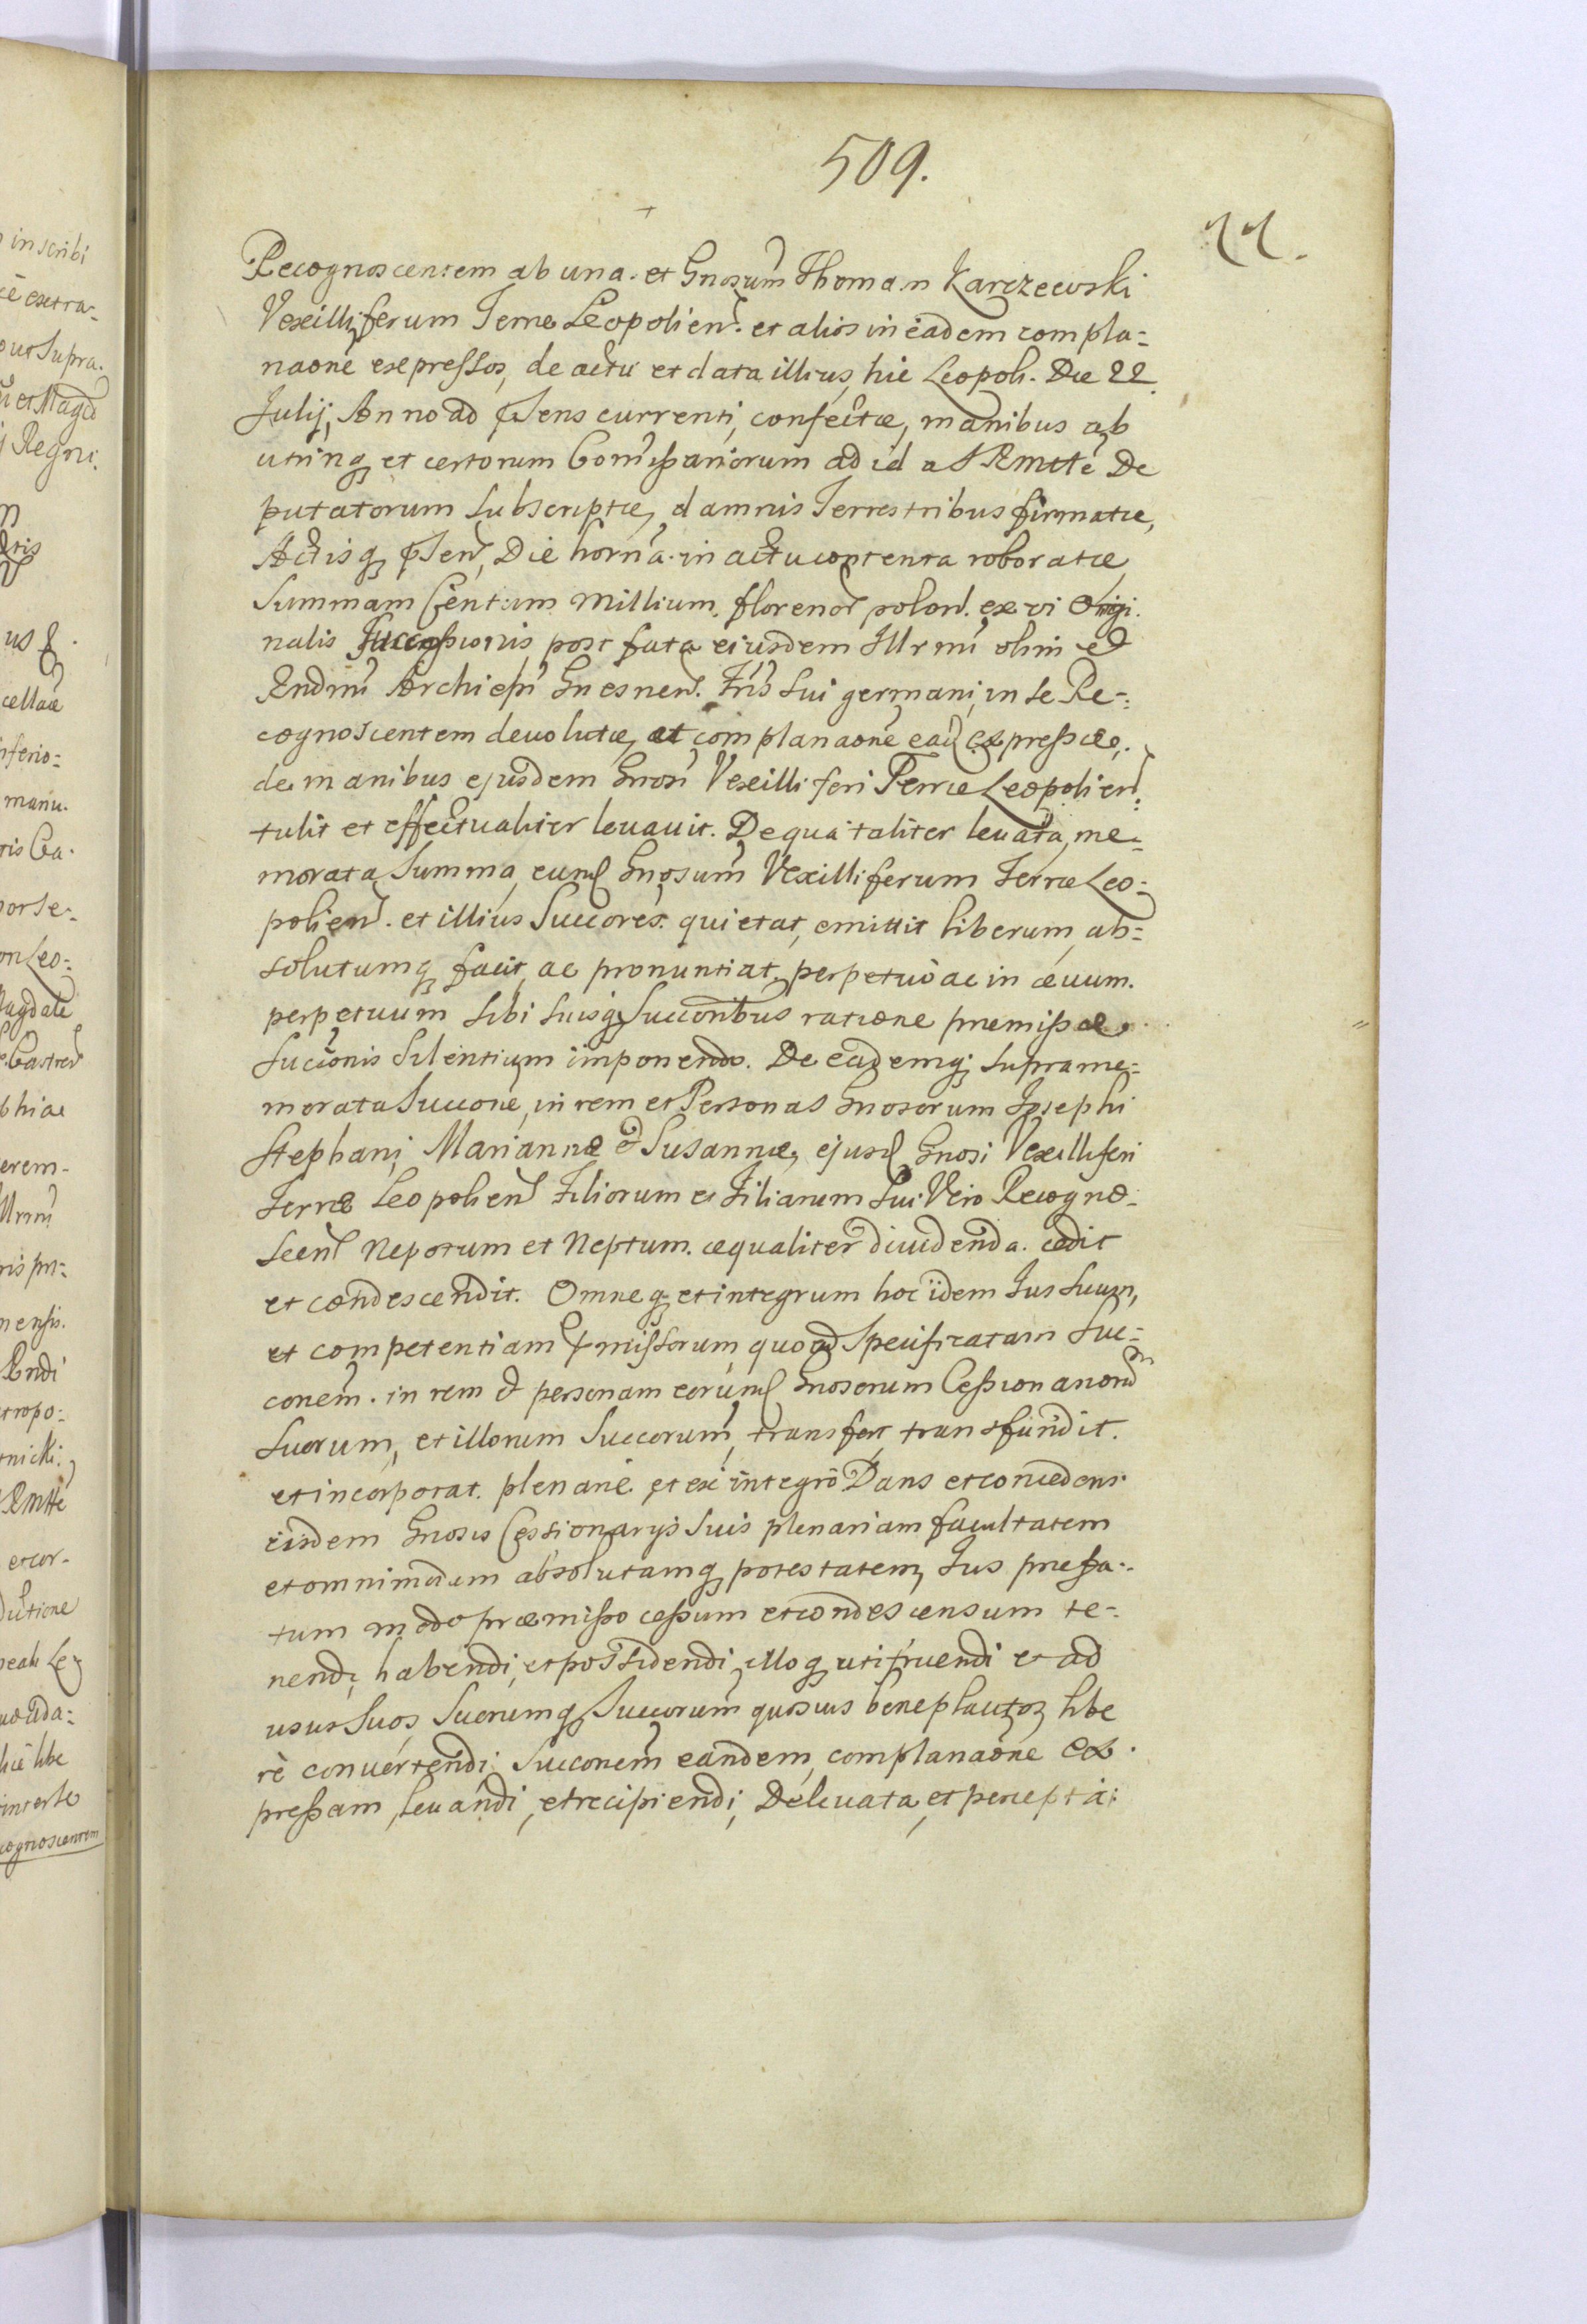 509.
11.
Recognoscentem ab una. et Gnosum Thoman Karczewski
Vexilliferum Terræ Leopolien. et alios in eadem compla=
naone expressos, de actu et data illius, hic Leopoli. Die 22
Julij, Anno ad psens currenti, confectæ, manibus ab
utrinq et certorum Comissariorum ad id a S R Mtte De
putatorum subscriptæ, damnis Terrestribus firmatæ,
Actisq psen, Die horna. in actu contenta roboratæ,
Summam Centum Millium florenor polon. ex vi Origi.
nalis Successionis post fata eiusdem Illrmi olim et
Rndmi Archiepi Gnesnen. Fris sui germani, in se Re=
cognoscentem devolutæ, at complanaone ead expressæ,
de manibus ejusdem Gnosi Vexilliferi Terræ Leopolien
tulit et effectualiter levavit. De qua taliter levata, me=
morata Summa, eund Gnosum Vexilliferum Terræ Leo=
polien. et illius Succores. quietat, emittit liberum, ab=
solutumq facit, ac pronuntiat, perpetuò ac in ævum.
perpetuum sibi suisq Succoribus ratione premissæ
Succionis silentium imponendo. De eademq supra me=
morata Succone, in rem et Personas Gnosorum Josephi
Stephani, Mariannæ & Susannæ, ejusd Gnosi Vexilliferi
Terræ Leopolien Filiorum et Filiarum sui Vero Recogno=
scen Nepotum et Neptum. æqualiter dividenda. cedit
et condescendit. Omneq et integrum hoc idem Jus suum,
et competentiam pmissorum, quoad specificatam Suc=
conem. in rem & personam eorund Gnosorum Cessionarior
suorum, et illorum Succorum, transfert, transfundit.
et incorporat. plenariè et ex integrò Dans et concedens
eisdem Gnosis Cessionarijs suis plenariam facultatem
et omnimodam absolutamq potestatem, Jus præfa=
tum modo præmisso cessum et condescensum te=
nendi, habendi, et possidendi, illoq utifruendi et ad
usus suos, suorumq Succorum quosvis beneplacitos libe
rè convertendi. Succonem eandem, complanaone ex
pressam, levandi, et recipiendi, De levata, et percepta: